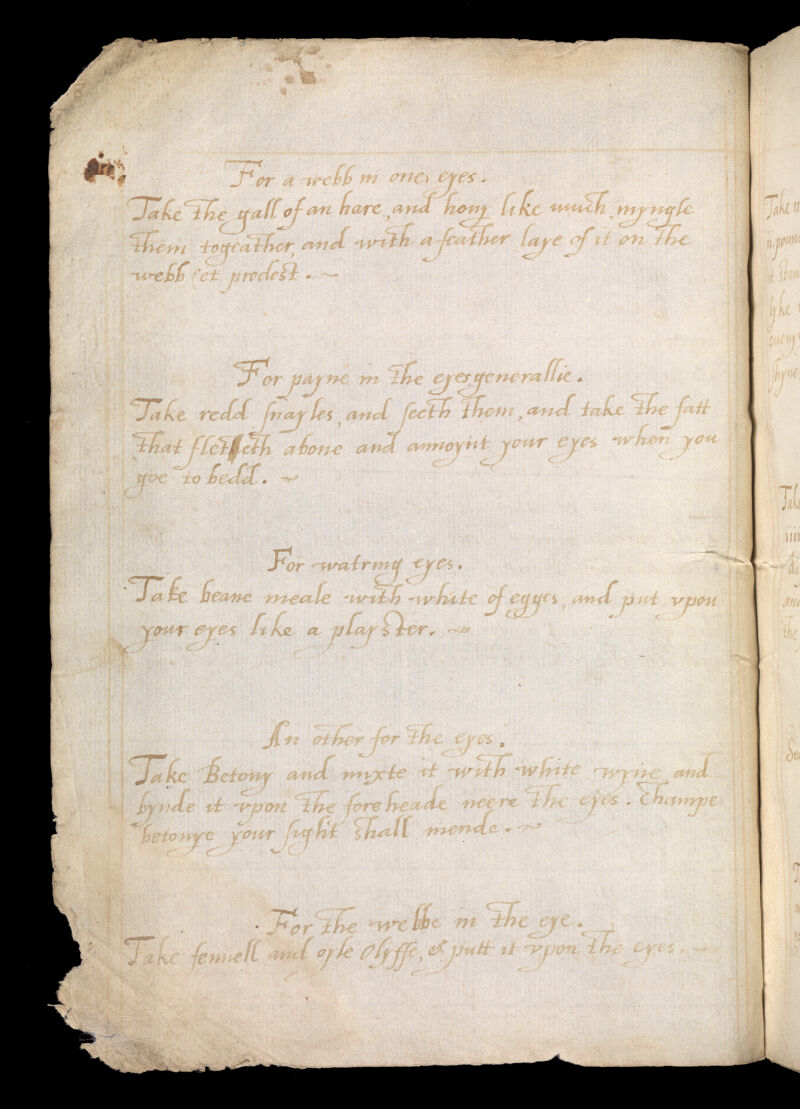 For a webb in ones eyes.
Take the gall of an hare, and hony like much, myngle
them togeather, and with a feather laye of it on the
webb et prodest.
For payne in the eyes generallie.
Take redd snayles, and seeth them, and take the fatt
that fletteth aboue and annoynt your eyes when you
goe to bedd.
For watring eyes.
Take beane meale with white of egges, and put vpon
your eyes like a playster.
An other for the eyes.
Take Betony and mixte it with white wyne and
bynde it vpon the foreheade neere the eyes. Champe
betonye your sight shall mende.
For the webbe in the eye.
Take fennell and oyle Olyffe, & putt it vpon the eyes.
Take
Take
the